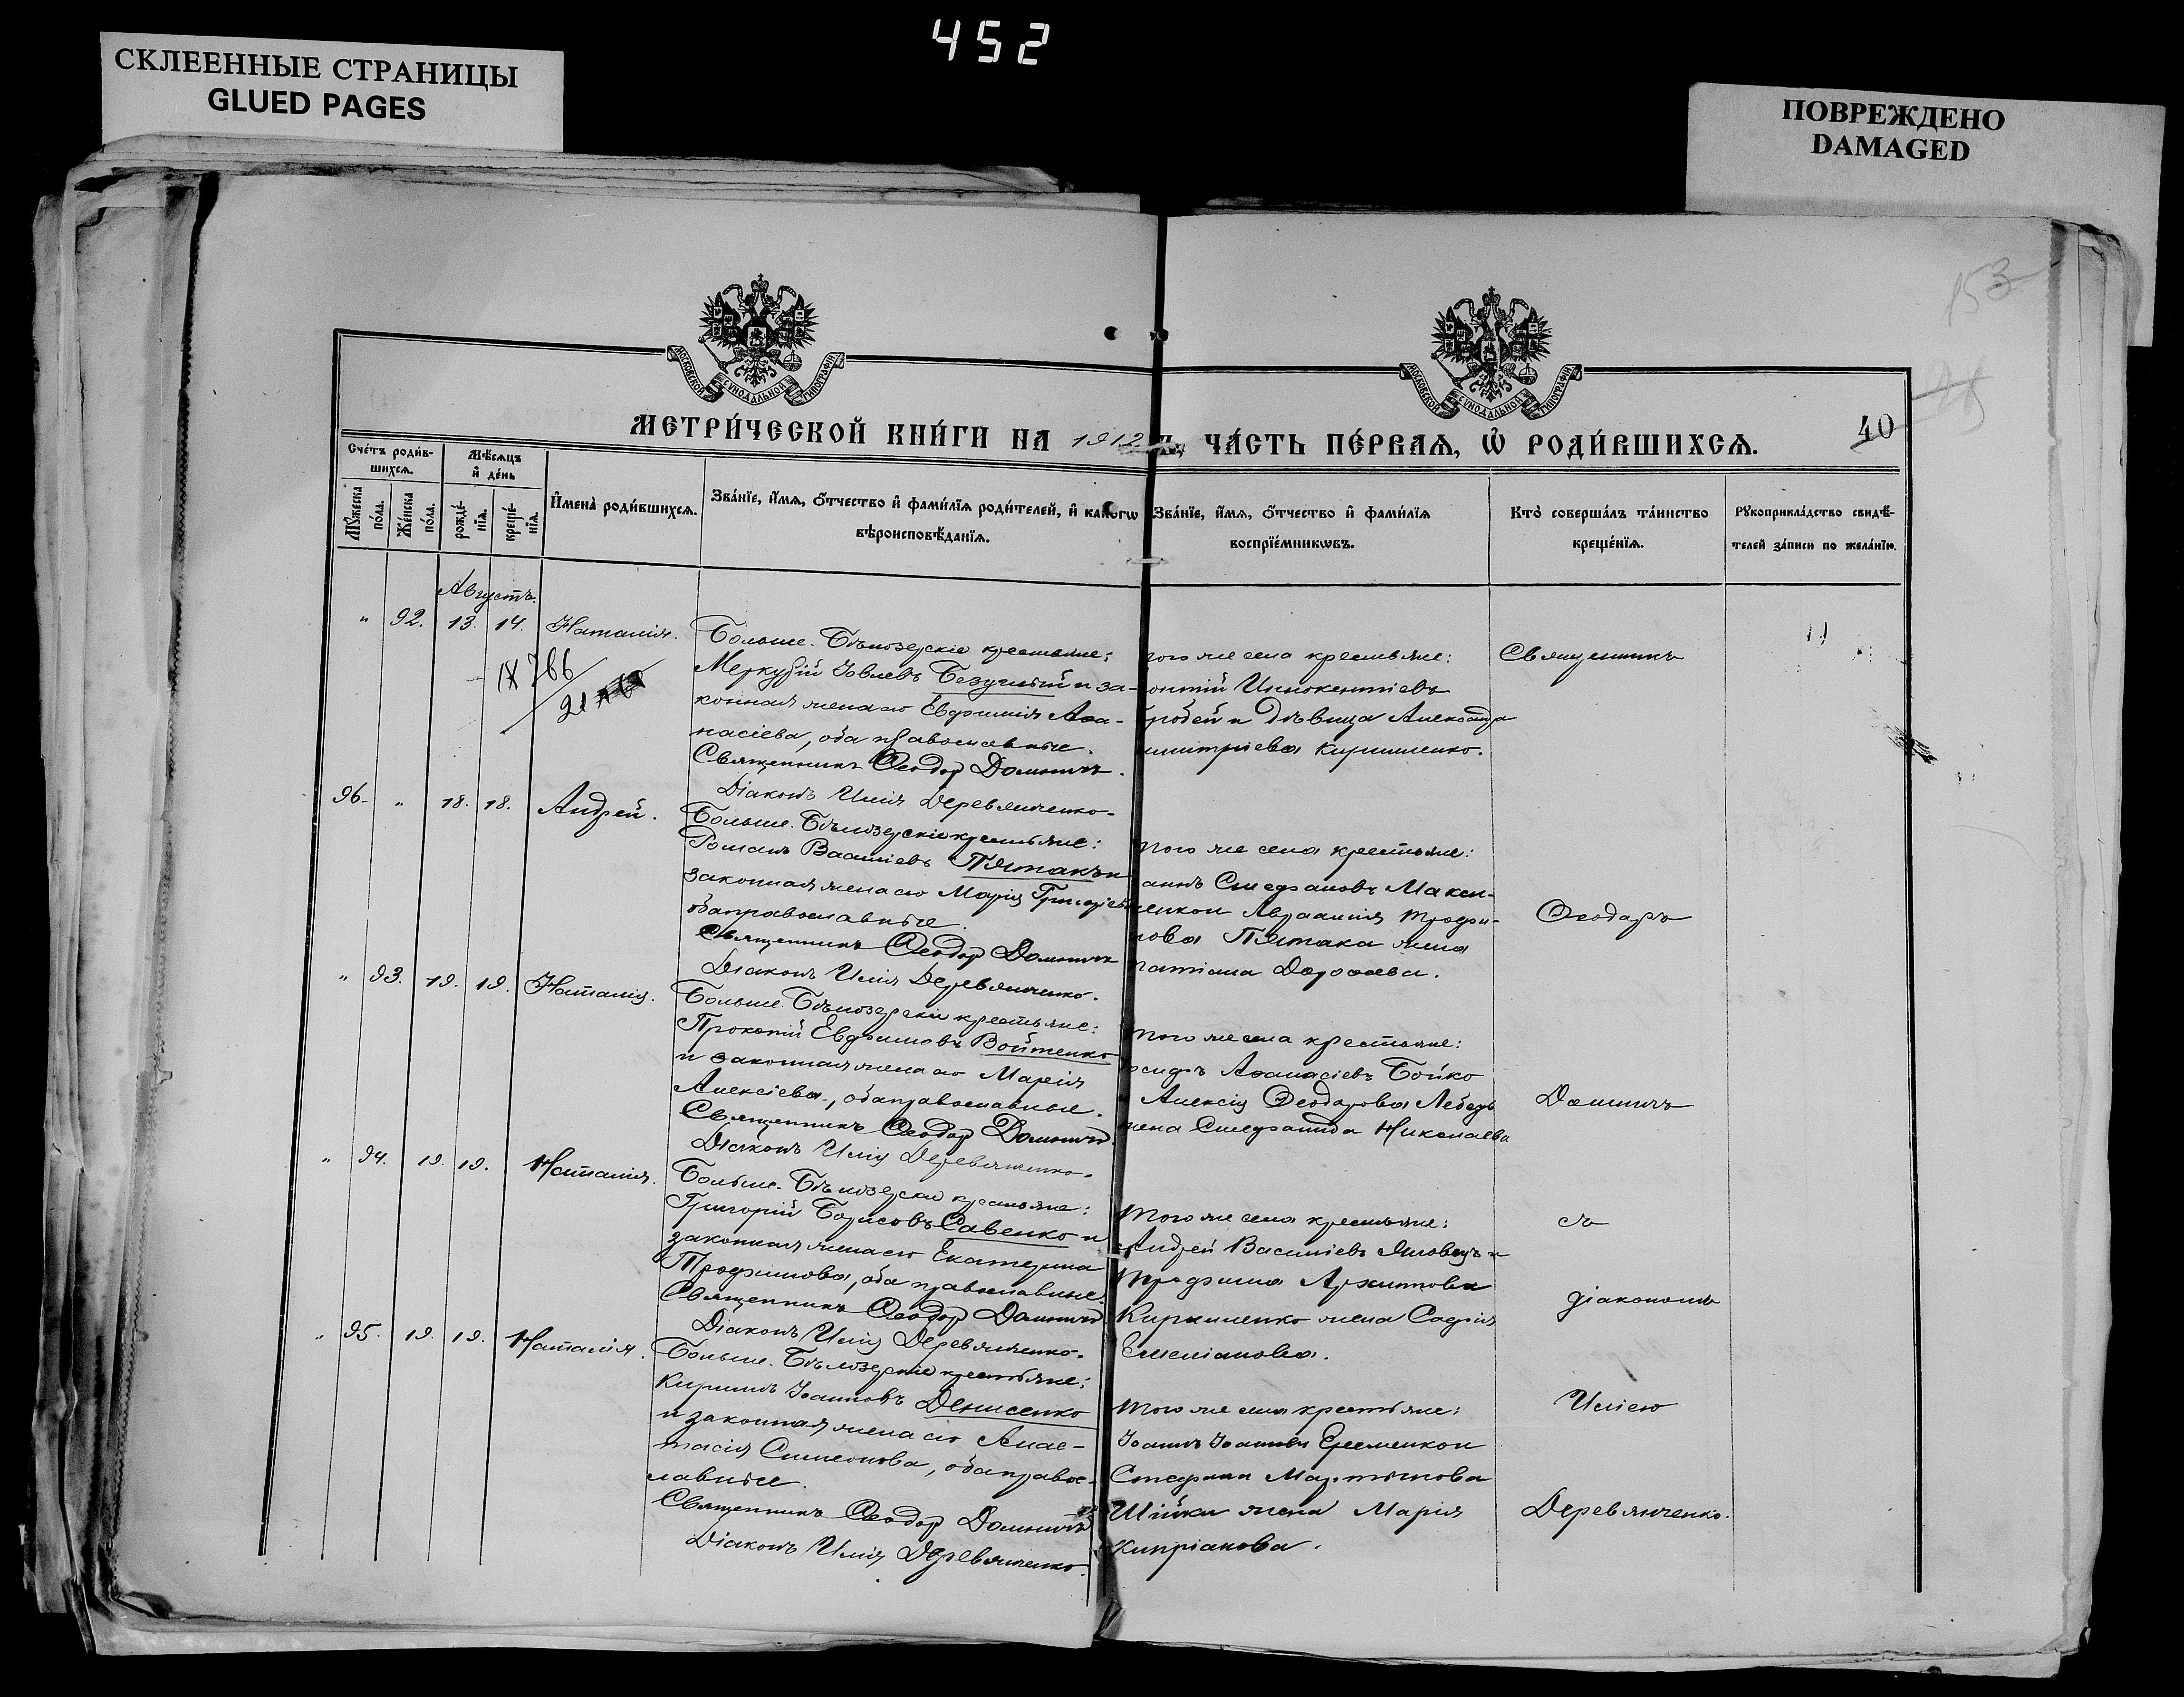 452
СКЛЕЕННЫЕ СТРАНИЦЫ
GLUED PAGES
ПОВРЕЖДЕНО
DAMAGED
153
МОСКОВСКОЙ СѴНОДАЛЬНОЙ ТИПОГРАФІИ
МОСКОВСКОЙ СѴНОДАЛЬНОЙ ТИПОГРАФІИ
40
МЕТРИ́ЧЕСКОЙ КНИ́ГИ НА 1912 ЧА́СТЬ ПЕ́РВАѦ, Ѡ҆ РОДИ́ВШИХСѦ.
Сче́тъ роди́в-
шихсѧ.
Мѣ́сѧцъ
и҆ де́нь
Мꙋ́жеска
по́ла.
Же́нска
по́ла.
рожде́-
нїѧ.
креще́-
нїѧ.
И҆мена̀ роди́вшихсѧ.
Зва́нїе, и҆́мѧ, ѻ҆́тчество и҆ фами́лїѧ роди́телей, и҆ како́гѡ
вѣроисповѣ́данїѧ.
Зва́нїе, и҆́мѧ, ѻ҆́тчество и҆ фами́лїѧ
воспрїе́мникѡвъ.
Кто̀ соверша́лъ та́инство
креще́нїѧ.
Рꙋкоприкла́дство свидѣ́-
телей за́писи по жела́нїю.
Августъ.
" 92. 13. 14. Наталія.
Больше-Бѣлозерскіе крестьяне:
Меркурій Іовлевъ Безуглый и за-
конная жена его Евфимія Аѳа-
насіева, оба православные.
Священникъ Ѳеодоръ Доминичъ.
Діаконъ Илія Деревянченко.
того же села крестьяне:
Иннокентіевъ
и дѣвица Александра
Кириленко.
Священникъ
IX 766
21
96. " 18. 18. Андрей.
Больше-Бѣлозерскіе крестьяне:
Романъ Василіевъ Пятакъ и
законная жена его Марія Григоріева
оба православные.
Священникъ Ѳеодоръ Доминичъ
Діаконъ Илія Деревянченко.
того же села крестьяне:
Стефановъ Максим-
енко и Авраамія Трофи-
мова Пятака жена
Татіана Дороѳеева.
Ѳеодоръ
" 93. 19. 19. Наталія.
Больше-Бѣлозерскіе крестьяне:
Прокопій Евфимовъ Войтенко
и законная жена его Марія
Алексіева, оба православные.
Священникъ Ѳеодоръ Доминичъ.
Діаконъ Илія Деревянченко.
того же села крестьяне:
Аѳанасіевъ Бойко
и Алексія Ѳеодорова Лебедь
жена Стефанида Николаева
Доминичъ
" 94. 19. 19. Наталія.
Больше-Бѣлозерскіе крестьяне:
Григорій Борисовъ Савенко и
законная жена его Екатерина
Трофимова, оба православные.
Священникъ Ѳеодоръ Доминичъ
Діаконъ Илія Деревянченко.
того же села крестьяне:
Андрей Василіевъ Яловецъ и
Трофима Архипова
Кириленко жена Софія
Емеліанова.
съ
діакономъ
" 95. 19. 19. Наталія.
Больше-Бѣлозерскіе крестьяне:
Кириллъ Іоанновъ Денисенко
и законная жена его Анас-
тасія Симеонова, оба право-
славные.
Священникъ Ѳеодоръ Доминичъ
Діаконъ Илія Деревянченко.
того же села крестьяне:
Іоаннъ Іоанновъ Еременко и
Стефана Мартынова
Шійки жена Марія
Кипріанова.
Иліею
Деревянченко.